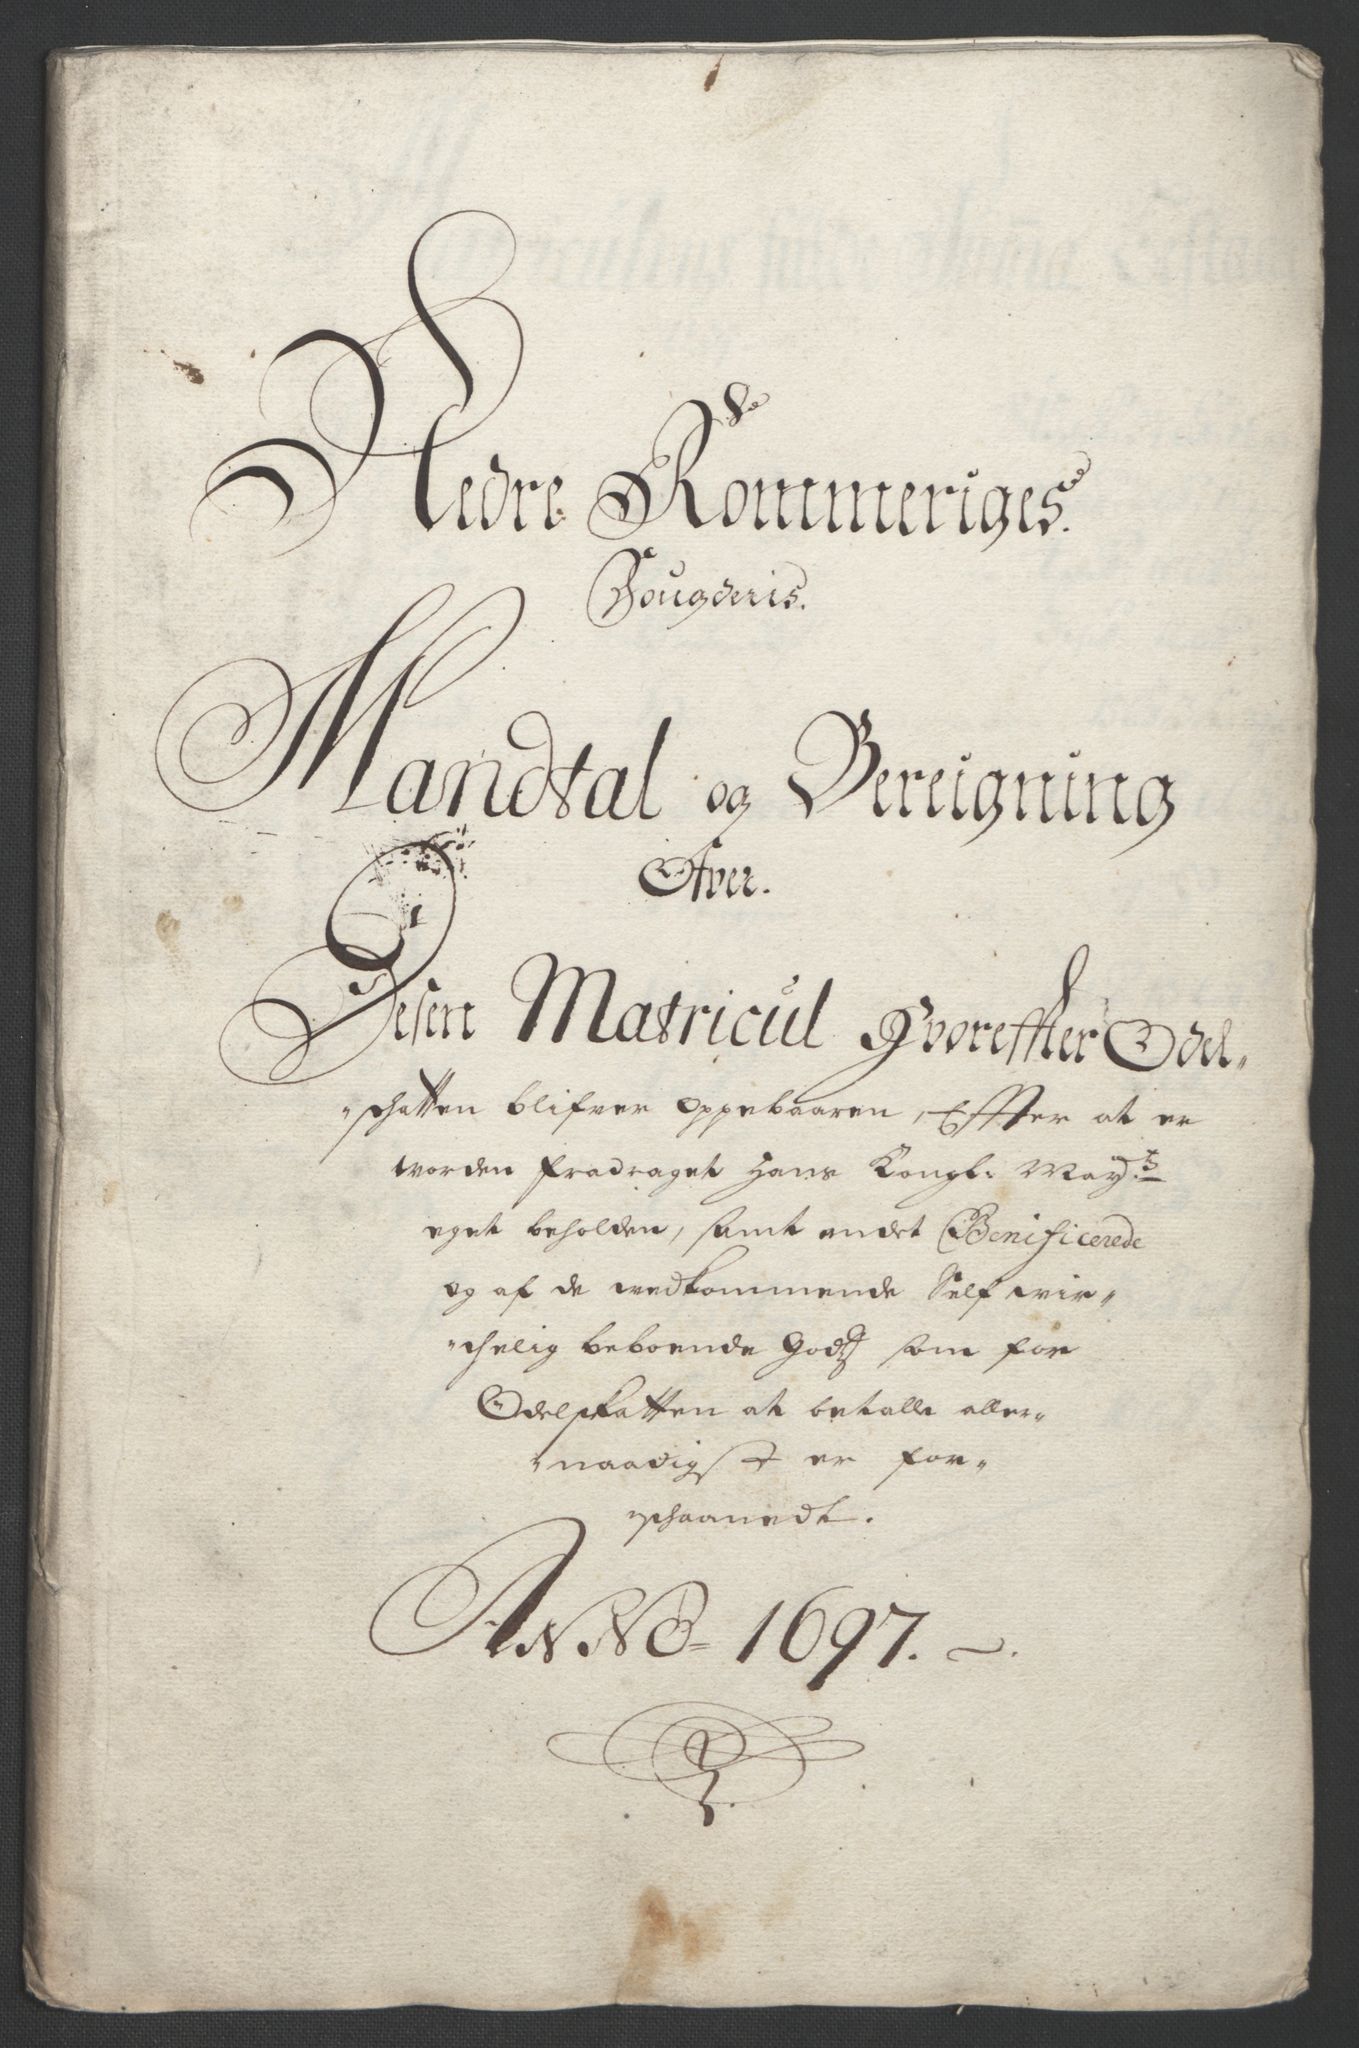 Nedre Rommeriges.
Fougderis.
Mandtal og Bereigning
Ofver.
Desen Matricul Hvoreffter Odel-
schatten blifver oppebaaren, Effter at er
worden fradraget Hans Kongl: May:ts
eget beholden, samt andet Benificerede
og af de wedkommende Self wir-
chelig beboende Godtz som for
Odelskatten at betalle aller-
naadigst er for-
schaanedt.
ANNO 1697.